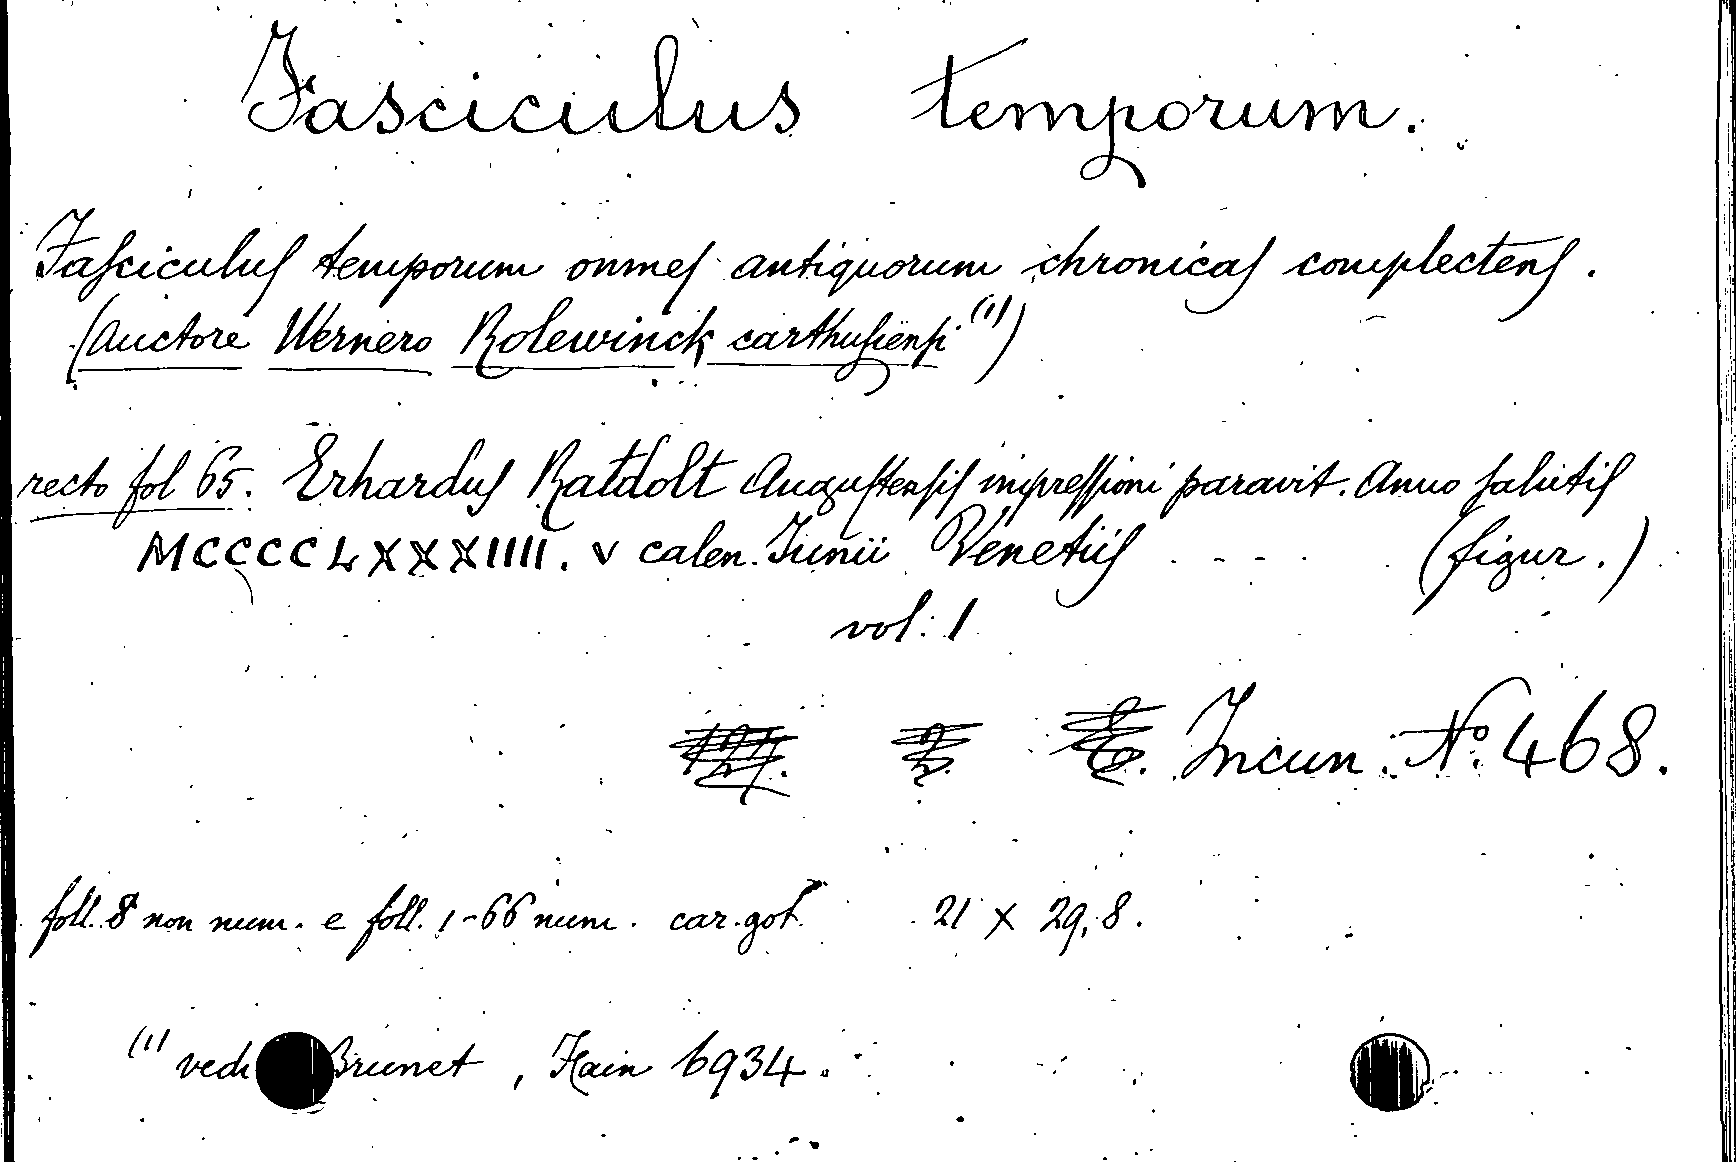 Fasciculus temporum.
Faſciculuſ temporum onmeſ antiquorum chronicaſ complectenſ.
(Auctore Wernero Rolewinck carthuſienſi (1))
recto fol 65. Erharduſ Ratdolt Auguſtenſiſ impreſſioni paravit. Anno ſalutiſ
MCCCCLXXXIIII. v calen. Junii Venetiiſ - - - - (figur.)
vol: 1
Incun. No. 468.
foll. 8 non num. e foll. 1-66 num. car. got. 21 x 29,8.
(1) vedi Brunet, Hain 6934.